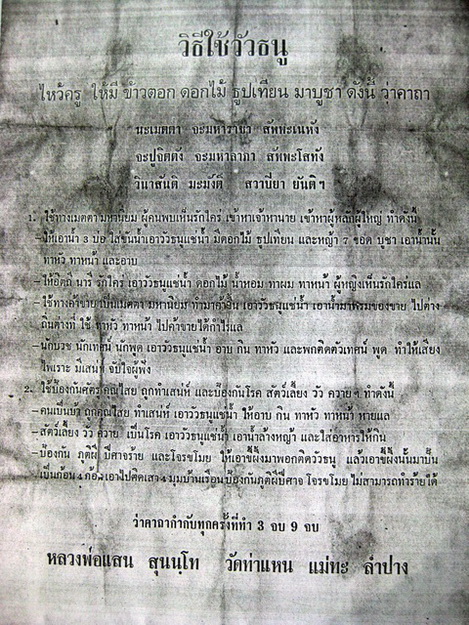 วิธีใช้วัวธนู
ไหว้ครู ให้มี ข้าวตอก ดอกไม้ ธูปเทียน มาบูชา ดังนี้ ว่าคาถา
มะเมตตา จะมหาราชา สัพพะเนหัง
จะปูจิตตัง จะมหาลาภา สัพพะโสทัง
วินาสันติ มะมังติ สวาบียา ยันติฯ
1. ใช้ทางเมตตามหานิยม ผู้คนพบเห็นรักใคร่ เข้าหาเจ้าหานาย เข้าหาผู้หลักผู้ใหญ่ ทำดังนี้
–ให้เอาน้ำ 3 บ่อ ใส่ขันน้ำเอาวัวธนูแช่น้ำ มีดอกไม้ ธูปเทียน และหญ้า 7 ยอด บูชา เอาน้ำนั้น
ทาหัว ทาหน้า และอาบ
–ให้อิตถี นารี รักใคร่ เอาวัวธนูแช่น้ำ ดอกไม้ น้ำหอม ทาผม ทาหน้า ผู้หญิงเห็นรักใคร่แล
–ใช้ทางค้าขาย เป็นเมตตา มหานิยม ทำมาค้าขึ้น เอาวัวธนูแช่น้ำ เอาน้ำมาพรมของขาย ไปต่าง
ถิ่นต่างที่ ใช้ ทาหัว ทาหน้า ไปค้าขายได้กำไรแล
–นักบวช นักเทศน์ นักพูด เอาวัวธนูแช่น้ำ อาบ กิน ทาหัว และพกติดตัวเทศน์ พูด ทำให้เสียง
ไพเราะ มีเสน่ห์ จับใจผู้ฟัง
2. ใช้ป้องกันศัตรู คุณไสย ถูกทำเสน่ห์ และป้องกันโรค สัตว์เลี้ยง วัว ควายฯ ทำดังนี้
–คนเป็นบ้า ถูกคุณไสย ทำเสน่ห์ เอาวัวธนูแช่น้ำ ให้อาบ กิน ทาหัว ทาหน้า หายแล
–สัตว์เลี้ยง วัว ควาย เป็นโรค เอาวัวธนูแช่น้ำ เอาน้ำล้างหญ้า และใส่อาหารให้กิน
–ป้องกัน ภูติผี ปีศาจร้าย และโจรขโมย ให้เอาขี้ผึ้งมาพอกติดวัวธนู แล้วเอาขี้ผึ้งนั้นมาปั้น
เป็นก้อน 4 ก้อน เอาไปติดเสา 4 มุมบ้านเรือน ป้องกันภูติผีปีศาจ โจรขโมย ไม่สามารถทำร้ายได้
ว่าคาถากำกับทุกครั้งที่ทำ 3 จบ 9 จบ
หลวงพ่อแสน สุนนฺโท วัดท่าแหน แม่ทะ ลำปาง